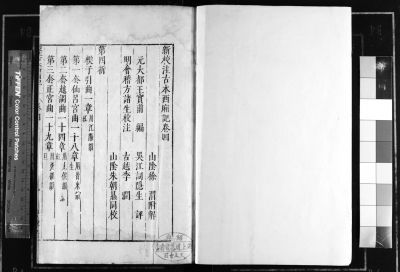 新校注古本西廂記卷四
元大都王實甫 編
明會稽方諸生校注
山陰徐 渭附解
吳江詞隱生 評
古越李 
山陰朱朝鼎同校
第四折
楔子引曲一章
第一套仙呂宮曲一十八章
第二套越調曲一十四章
第三套正宮曲一十九章
TIFFEN Color Control Patches